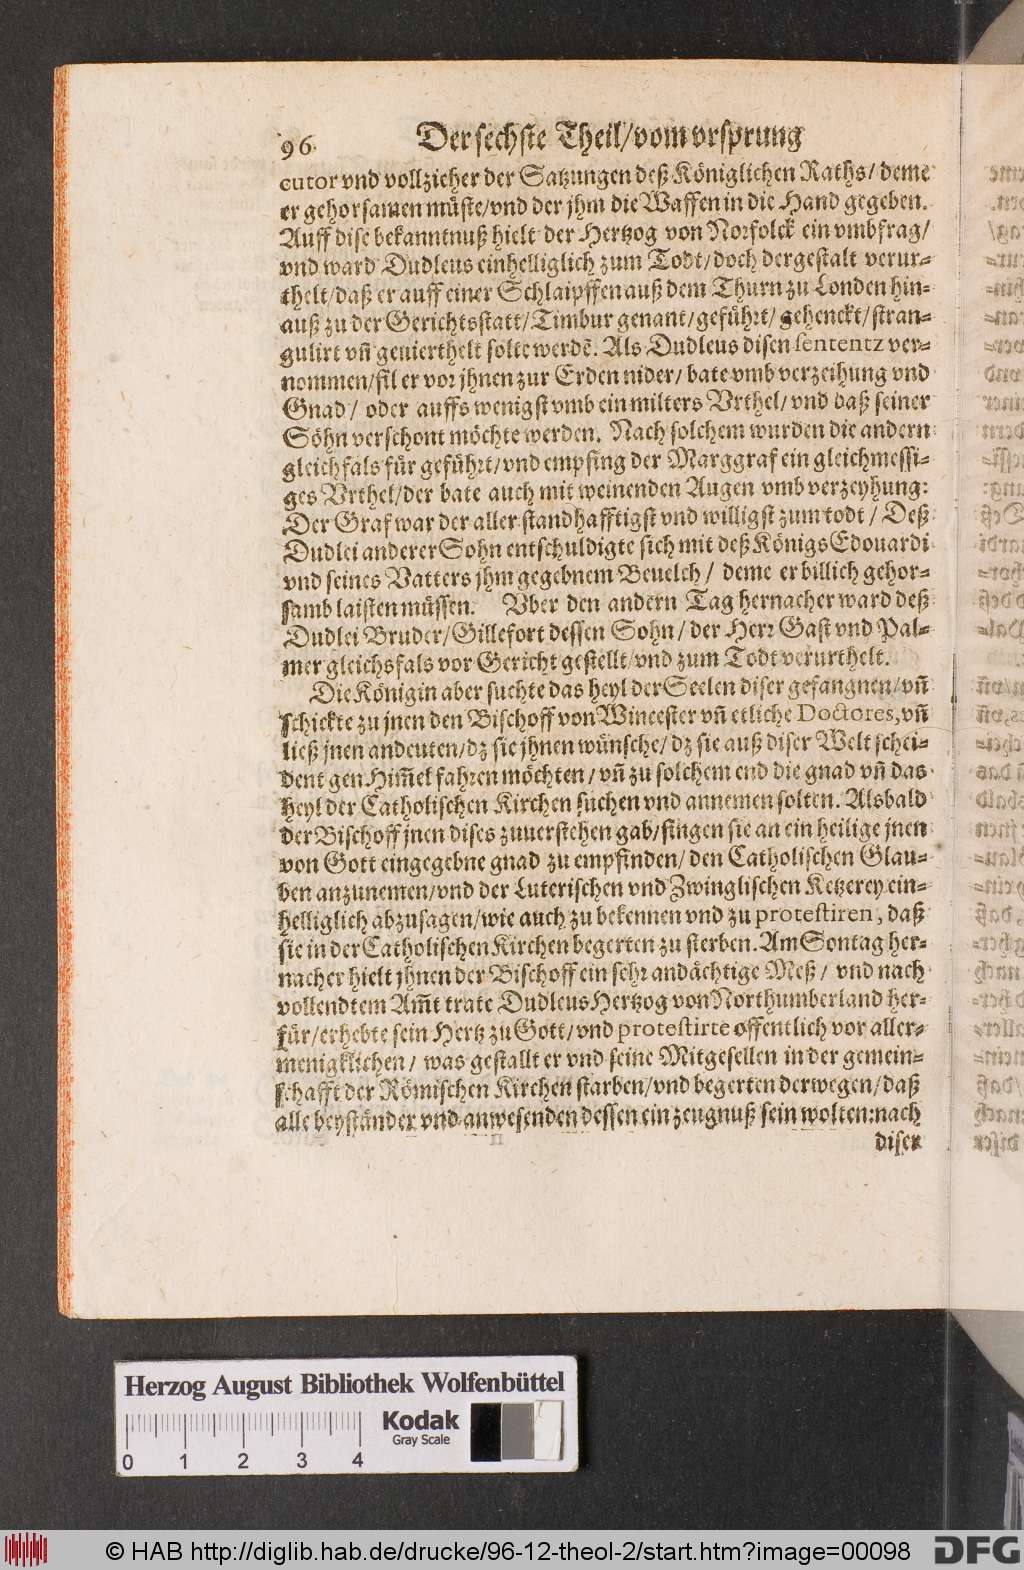 96. Der sechste Theil/vom vrsprung
cutor vnd vollzieher der Satzungen deß Königlichen Raths/ deme
er gehorsamen müste/vnd der jhm die Waffen in die Hand gegeben.
Auff dise bekanntnuß hielt der Hertzog von Norfolck ein vmbfrag/
vnd ward Dudleus einhelliglich zum Todt/doch dergestalt verur-
thelt/daß er auff einer Schlaipffen auß dem Thurn zu Londen hin-
auß zu der Gerichtsstatt/Timbur genant/geführt/ gehenckt/stran-
gulirt vñ geuierthelt solte werdē. Als Dudleus disen sententz ver-
nommen/fil er vor jhnen zur Erden nider/ bate vmb verzeihung vnd
Gnad/ oder auffs wenigst vmb ein milters Vrthel/ vnd daß seiner
Söhn verschont möchte werden. Nach solchem wurden die andern
gleichfals für geführt/vnd empfing der Marggraf ein gleichmessi-
ges Vrthel/der bate auch mit weinenden Augen vmb verzeyhung:
Der Graf war der aller standhafftigst vnd willigst zum todt/ Deß
Dudlei anderer Sohn entschuldigte sich mit deß Königs Edouardi
vnd seines Vatters jhm gegebnem Beuelch/ deme er billich gehor-
samb laisten müssen. Vber den andern Tag hernacher ward deß
Dudlei Bruder/Gillefort dessen Sohn/ der Herr Gast vnd Pal-
mer gleichsfals vor Gericht gestellt/vnd zum Todt verurthelt.
Die Königin aber suchte das heyl der Seelen diser gefangnen/vñ
schickte zu jnen den Bischoff von Wincester vñ etliche Doctores,vñ
ließ jnen andeuten/dz sie jhnen wünsche/ dz sie auß diser Welt schei-
dent gen Him̃el fahren möchten/ vñ zu solchem end die gnad vñ das
heyl der Catholischen Kirchen suchen vnd annemen solten. Alsbald
der Bischoff jnen dises zuuerstehen gab/fingen sie an ein heilige jnen
von Gott eingegebne gnad zu empfinden/ den Catholischen Glau-
ben anzunemen/vnd der Luterischen vnd Zwinglischen Ketzerey ein-
helliglich abzusagen/wie auch zu bekennen vnd zu protestiren, daß
sie in der Catholischen Kirchen begerten zu sterben. Am Sontag her-
nacher hielt jhnen der Bischoff ein sehr andächtige Meß/ vnd nach
vollendtem Am̃t trate Dudleus Hertzog von Northumberland her-
für/erhebte sein Hertz zu Gott/vnd protestirte offentlich vor aller-
menigklichen/ was gestallt er vnd seine Mitgesellen in der gemein-
schafft der Römischen Kirchen starben/vnd begerten derwegen/daß
alle beyständer vnd anwesenden dessen ein zeugnuß sein wolten:nach
diser
Herzog August Bibliothek Wolfenbüttel
0 1 2 3 4
Kodak
Gray Scale
© HAB http://diglib.hab.de/drucke/96-12-theol-2/start.htm?image=00098
DFG